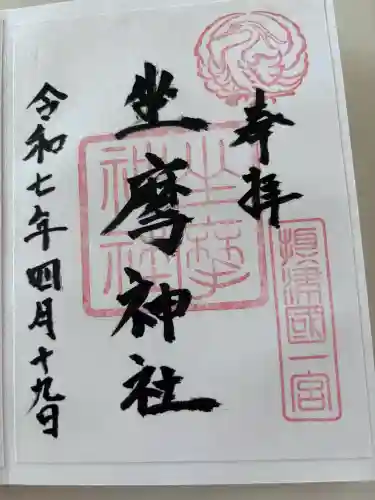 奉拝
攝津國一宮
坐摩神社
坐摩神社
令和七年四月十九日